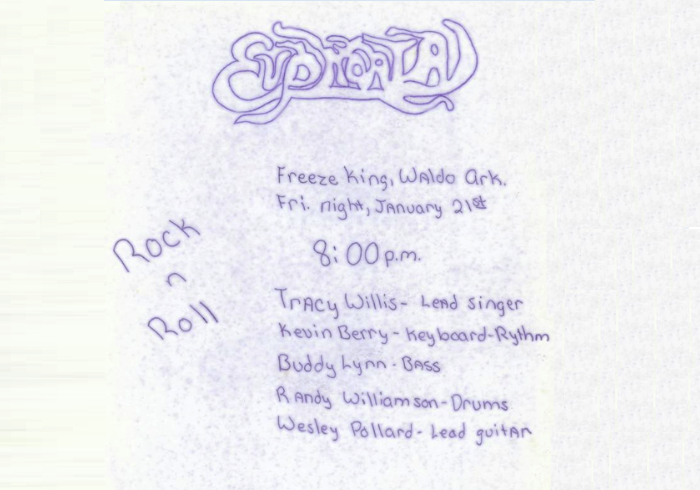 Freeze King, Waldo Ark.
Fri. night, January 21st
8:00 p.m.
Rock
n
Roll
Tracy Willis - Lead singer
Kevin Berry - Keyboard-Rythm
Buddy Lynn - Bass
Randy Williamson - Drums
Wesley Pollard - Lead guitar